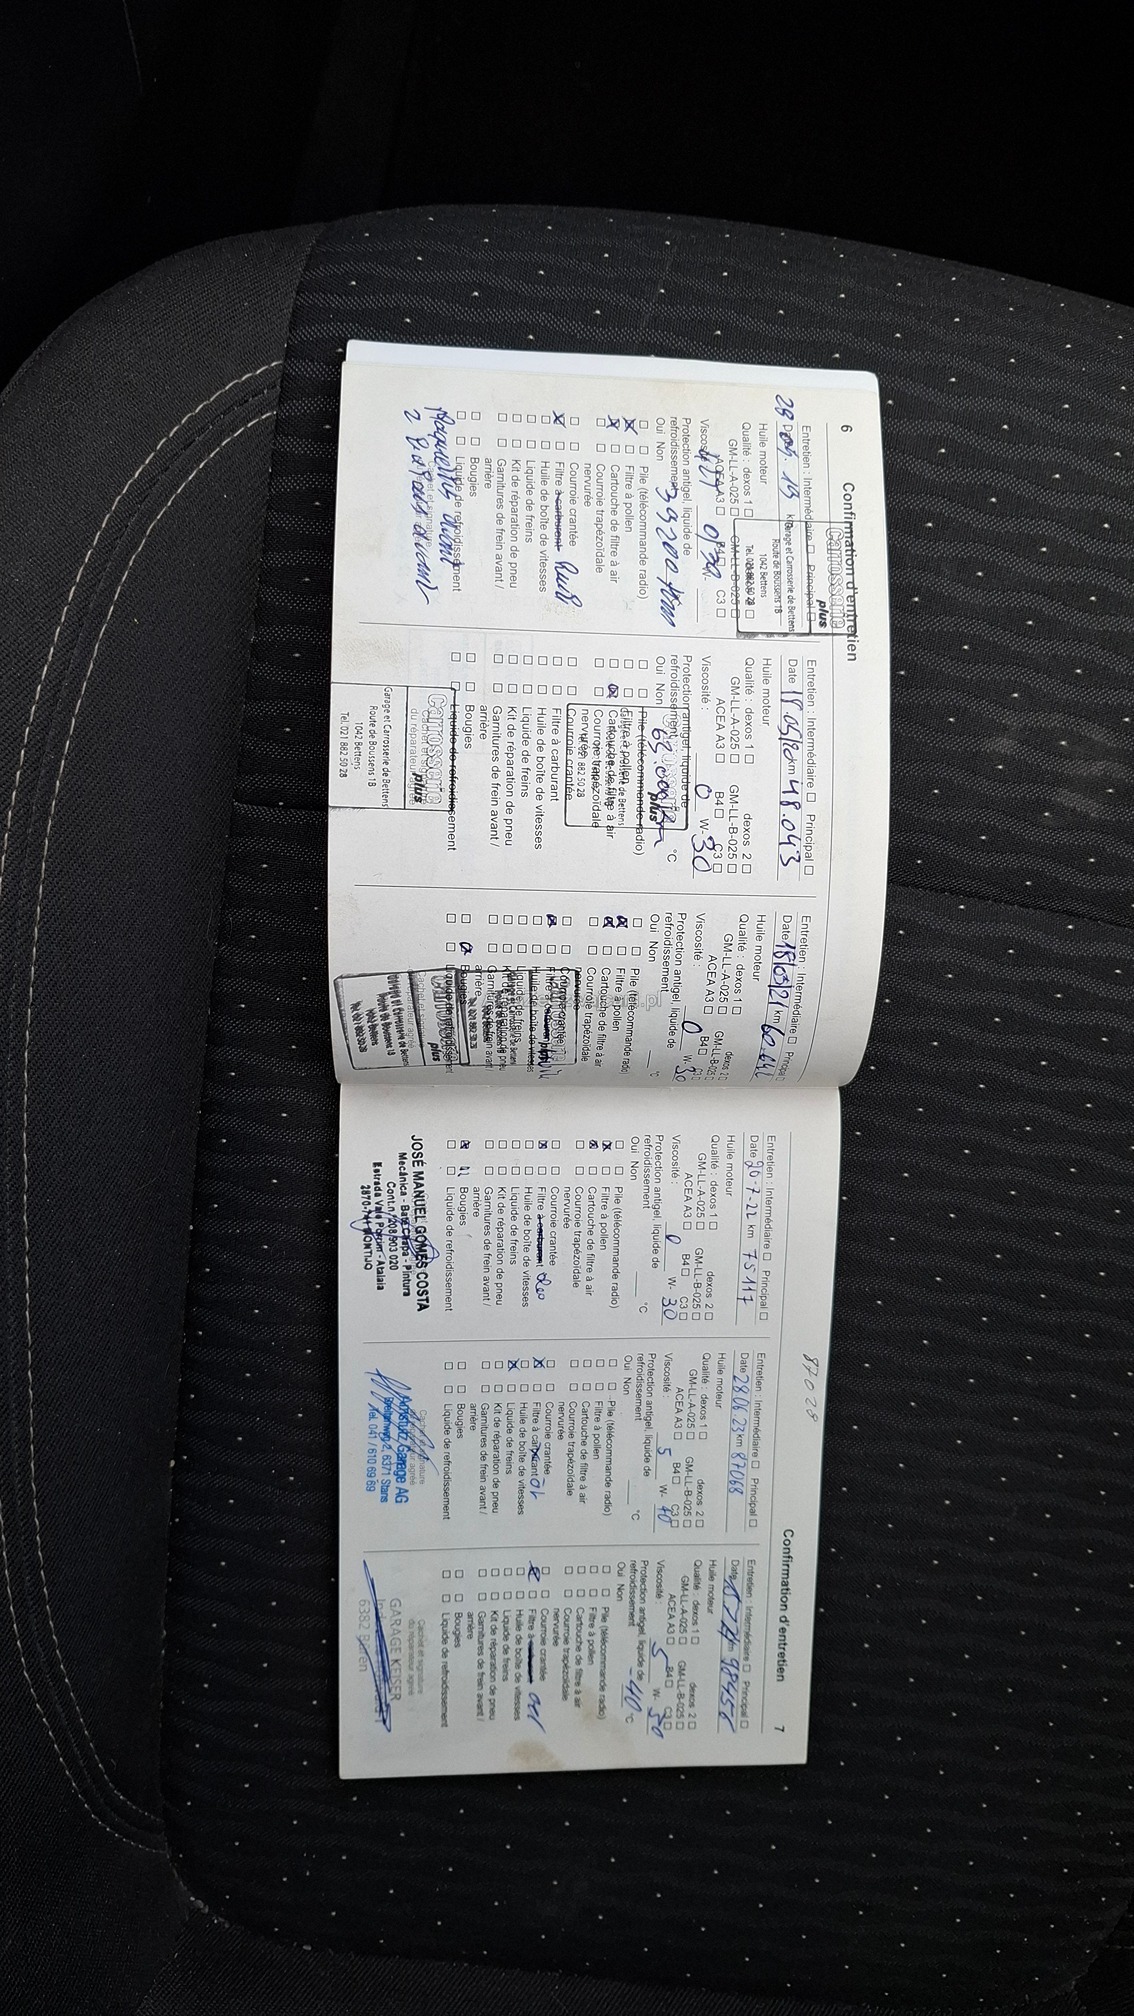 6
Confirmation d'entretien
Entretien : Intermédiaire □ Principal □
Carrosserie
plus
Garage et Carrosserie de Bettens
Route de Boussens 1B
1042 Bettens
Tél. 021 882 50 28
28 Date 19 km
Huile moteur
Qualité : dexos 1 □ dexos 2 □
GM-LL-A-025 □ GM-LL-B-025 □
ACEA A3 □ B4 □ C3 □
Viscosité 0/30 W-
Protection antigel, liquide de
refroidissement 39200 km
Oui Non
□ □ Pile (télécommande radio)
☒ □ Filtre à pollen
☒ □ Cartouche de filtre à air
□ □ Courroie trapézoïdale
nervurée
□ □ Courroie crantée
☒ □ Filtre à carburant huile
□ □ Huile de boîte de vitesses
□ □ Liquide de freins
□ □ Kit de réparation de pneu
□ □ Garnitures de frein avant /
arrière
□ □ Bougies
□ □ Liquide de refroidissement
Entretien : Intermédiaire □ Principal □
Date 18/05/20 km 48.043
Huile moteur
Qualité : dexos 1 □ dexos 2 □
GM-LL-A-025 □ GM-LL-B-025 □
ACEA A3 □ B4 □ C3 □
Viscosité : 0 W- 30
Protection antigel, liquide de
refroidissement °C
Oui Non
□ □ Pile (télécommande radio)
□ □ Filtre à pollen
☒ □ Cartouche de filtre à air
□ □ Courroie trapézoïdale
nervurée
□ □ Courroie crantée
□ □ Filtre à carburant
□ □ Huile de boîte de vitesses
□ □ Liquide de freins
□ □ Kit de réparation de pneu
□ □ Garnitures de frein avant /
arrière
□ □ Bougies
□ □ Liquide de refroidissement
Carrosserie
plus
Garage et Carrosserie de Bettens
Route de Boussens 1B
1042 Bettens
Tél. 021 882 50 28
Entretien : Intermédiaire □ Principal □
Date 18/03/21 km
Huile moteur
Qualité : dexos 1 □ dexos 2 □
GM-LL-A-025 □ GM-LL-B-025 □
ACEA A3 □ B4 □ C3 □
Viscosité : 0 W- 30
Protection antigel, liquide de
refroidissement °C
Oui Non
□ □ Pile (télécommande radio)
☒ □ Filtre à pollen
☒ □ Cartouche de filtre à air
□ □ Courroie trapézoïdale
nervurée
□ □ Courroie crantée
☒ □ Filtre à
□ □ Huile de boîte de vitesses
□ □ Liquide de freins
□ □ Kit de réparation de pneu
□ □ Garnitures de frein avant /
arrière
□ ☒ Bougies
□ □ Liquide de refroidissement
Carrosserie
plus
Garage et Carrosserie de Bettens
Route de Boussens 1B
1042 Bettens
Confirmation d'entretien
7
87028
Entretien : Intermédiaire □ Principal □
Date 20-7-22 km 75117
Huile moteur
Qualité : dexos 1 □ dexos 2 □
GM-LL-A-025 □ GM-LL-B-025 □
ACEA A3 □ B4 □ C3 □
Viscosité : 0 W- 30
Protection antigel, liquide de
refroidissement °C
Oui Non
□ □ Pile (télécommande radio)
☒ □ Filtre à pollen
☒ □ Cartouche de filtre à air
□ □ Courroie trapézoïdale
nervurée
□ □ Courroie crantée
☒ □ Filtre à carburant oleo
□ □ Huile de boîte de vitesses
□ □ Liquide de freins
□ □ Kit de réparation de pneu
□ □ Garnitures de frein avant /
arrière
☒ □ Bougies
□ □ Liquide de refroidissement
JOSÉ MANUEL GOMES COSTA
Mecânica - Bate Chapa - Pintura
Cont.n.º 208 903 020
- Atalaia
MONTIJO
Entretien : Intermédiaire □ Principal □
Date 28 06 23 km 87068
Huile moteur
Qualité : dexos 1 □ dexos 2 □
GM-LL-A-025 □ GM-LL-B-025 □
ACEA A3 □ B4 □ C3 □
Viscosité : 5 W- 40
Protection antigel, liquide de
refroidissement °C
Oui Non
□ □ Pile (télécommande radio)
□ □ Filtre à pollen
□ □ Cartouche de filtre à air
□ □ Courroie trapézoïdale
nervurée
□ □ Courroie crantée
☒ □ Filtre à carburant öl
□ □ Huile de boîte de vitesses
☒ □ Liquide de freins
□ □ Kit de réparation de pneu
□ □ Garnitures de frein avant /
arrière
□ □ Bougies
□ □ Liquide de refroidissement
Cachet et signature
du réparateur agréé
Garage AG
2, 6371 Stans
Tel. 041 / 610 69 69
Entretien : Intermédiaire □ Principal □
Date km
Huile moteur
Qualité : dexos 1 □ dexos 2 □
GM-LL-A-025 □ GM-LL-B-025 □
ACEA A3 □ B4 □ C3 □
Viscosité : 5 W- 30
Protection antigel, liquide de
refroidissement -40 °C
Oui Non
□ □ Pile (télécommande radio)
□ □ Filtre à pollen
□ □ Cartouche de filtre à air
□ □ Courroie trapézoïdale
nervurée
□ □ Courroie crantée
☒ □ Filtre à carburant
□ □ Huile de boîte de vitesses
□ □ Liquide de freins
□ □ Kit de réparation de pneu
□ □ Garnitures de frein avant /
arrière
□ □ Bougies
□ □ Liquide de refroidissement
Cachet et signature
du réparateur agréé
GARAGE KEISER
6382 Büren